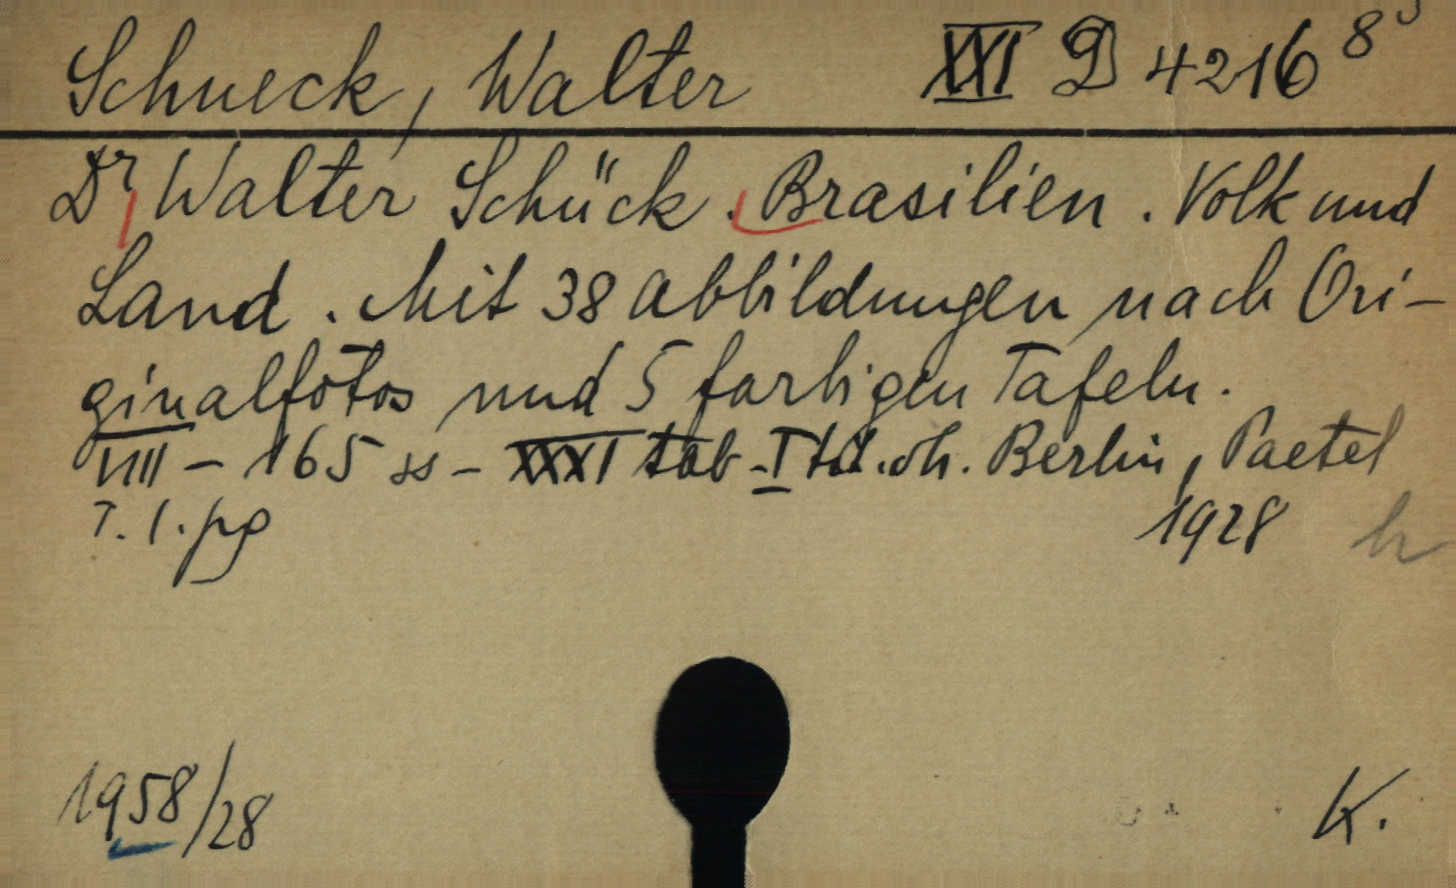 Schueck, Walter XXI D 4216 8°
Dr Walter Schück. Brasilien. Volk und
Land. Mit 38 Abbildungen nach Ori-
ginalfotos und 5 farbigen Tafeln.
VIII - 165 ss - XXXI tab - I tit. oh. Berlin, Paetel
T. 1. pg 1928 h
1958/28 K.